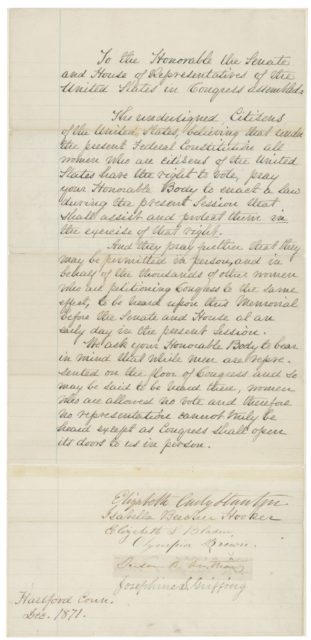 To the Honorable the Senate
and House of Representatives of the
United States in Congress assembled.
The undersigned Citizens
of the United States, believing that under
the present Federal Constitution all
women who are citizens of the United
States have the right to vote, pray
your Honorable Body to enact a law
during the present Session that
shall assist and protect them in
the exercise of that right.
And they pray further that they
may be permitted in person, and in
behalf of the thousands of other women
who are petitioning Congress to the same
effect, to be heard upon this Memorial
before the Senate and House at an
early day in the present Session.
We ask your Honorable Body to bear
in mind that while men are repre-
sented on the floor of Congress and so
may be said to be heard there, women
who are allowed no vote and therefore
no representation cannot truly be
heard except as Congress shall open
its doors to us in person.
Elizabeth Cady Stanton
Isabella Beecher Hooker
Elizabeth L Bladen
Olympia Brown.
Susan B. Anthony
Josephine S. Griffing
Hartford Conn.
Dec. 1871.